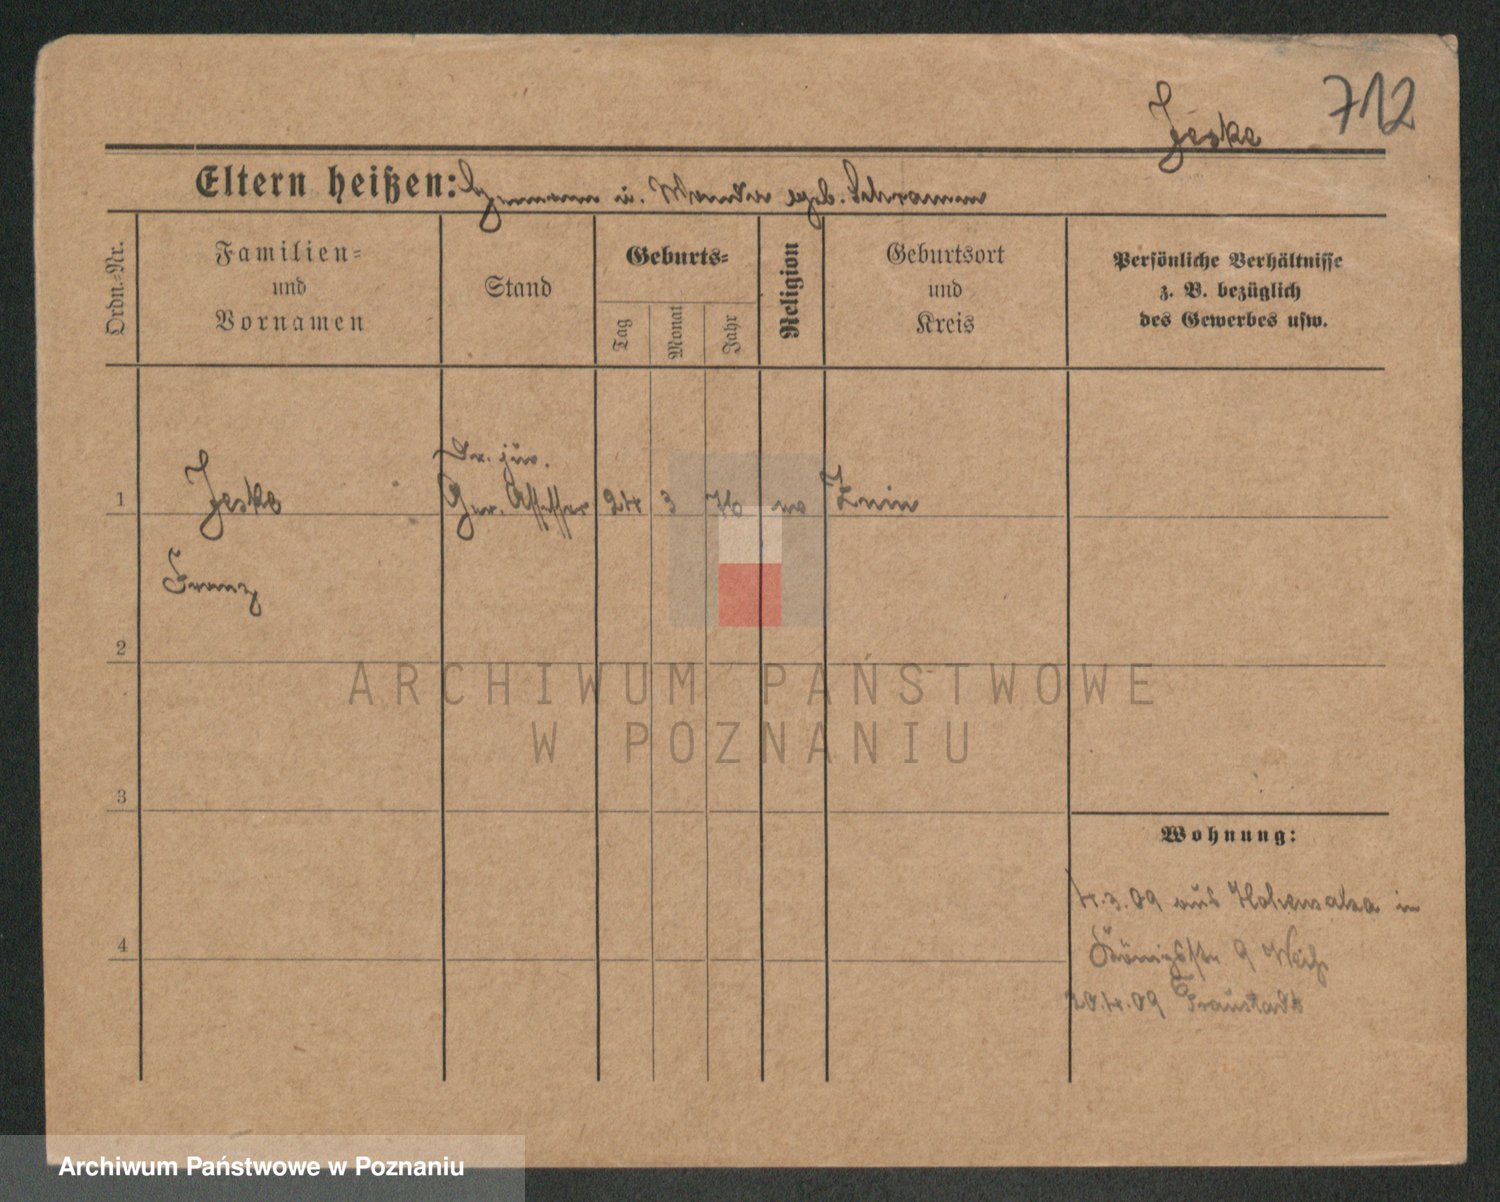 712
Jeske
Eltern heißen: Hermann u. Wanda geb. Schramm
Ordn.-Nr.
Familien-
und
Vornamen
Stand
Geburts-
Tag
Monat
Jahr
Religion
Geburtsort
und
Kreis
Persönliche Verhältnisse
z. B. bezüglich
des Gewerbes usw.
Dr. jur.
1 Jeske Ger. Assessor 24 3 Znin
Franz
2
3
4
Wohnung:
4.3.09 aus Hohensalza in
Königstr 9
20.4.09 Fraustadt
ARCHIWUM PAŃSTWOWE
W POZNANIU
Archiwum Państwowe w Poznaniu